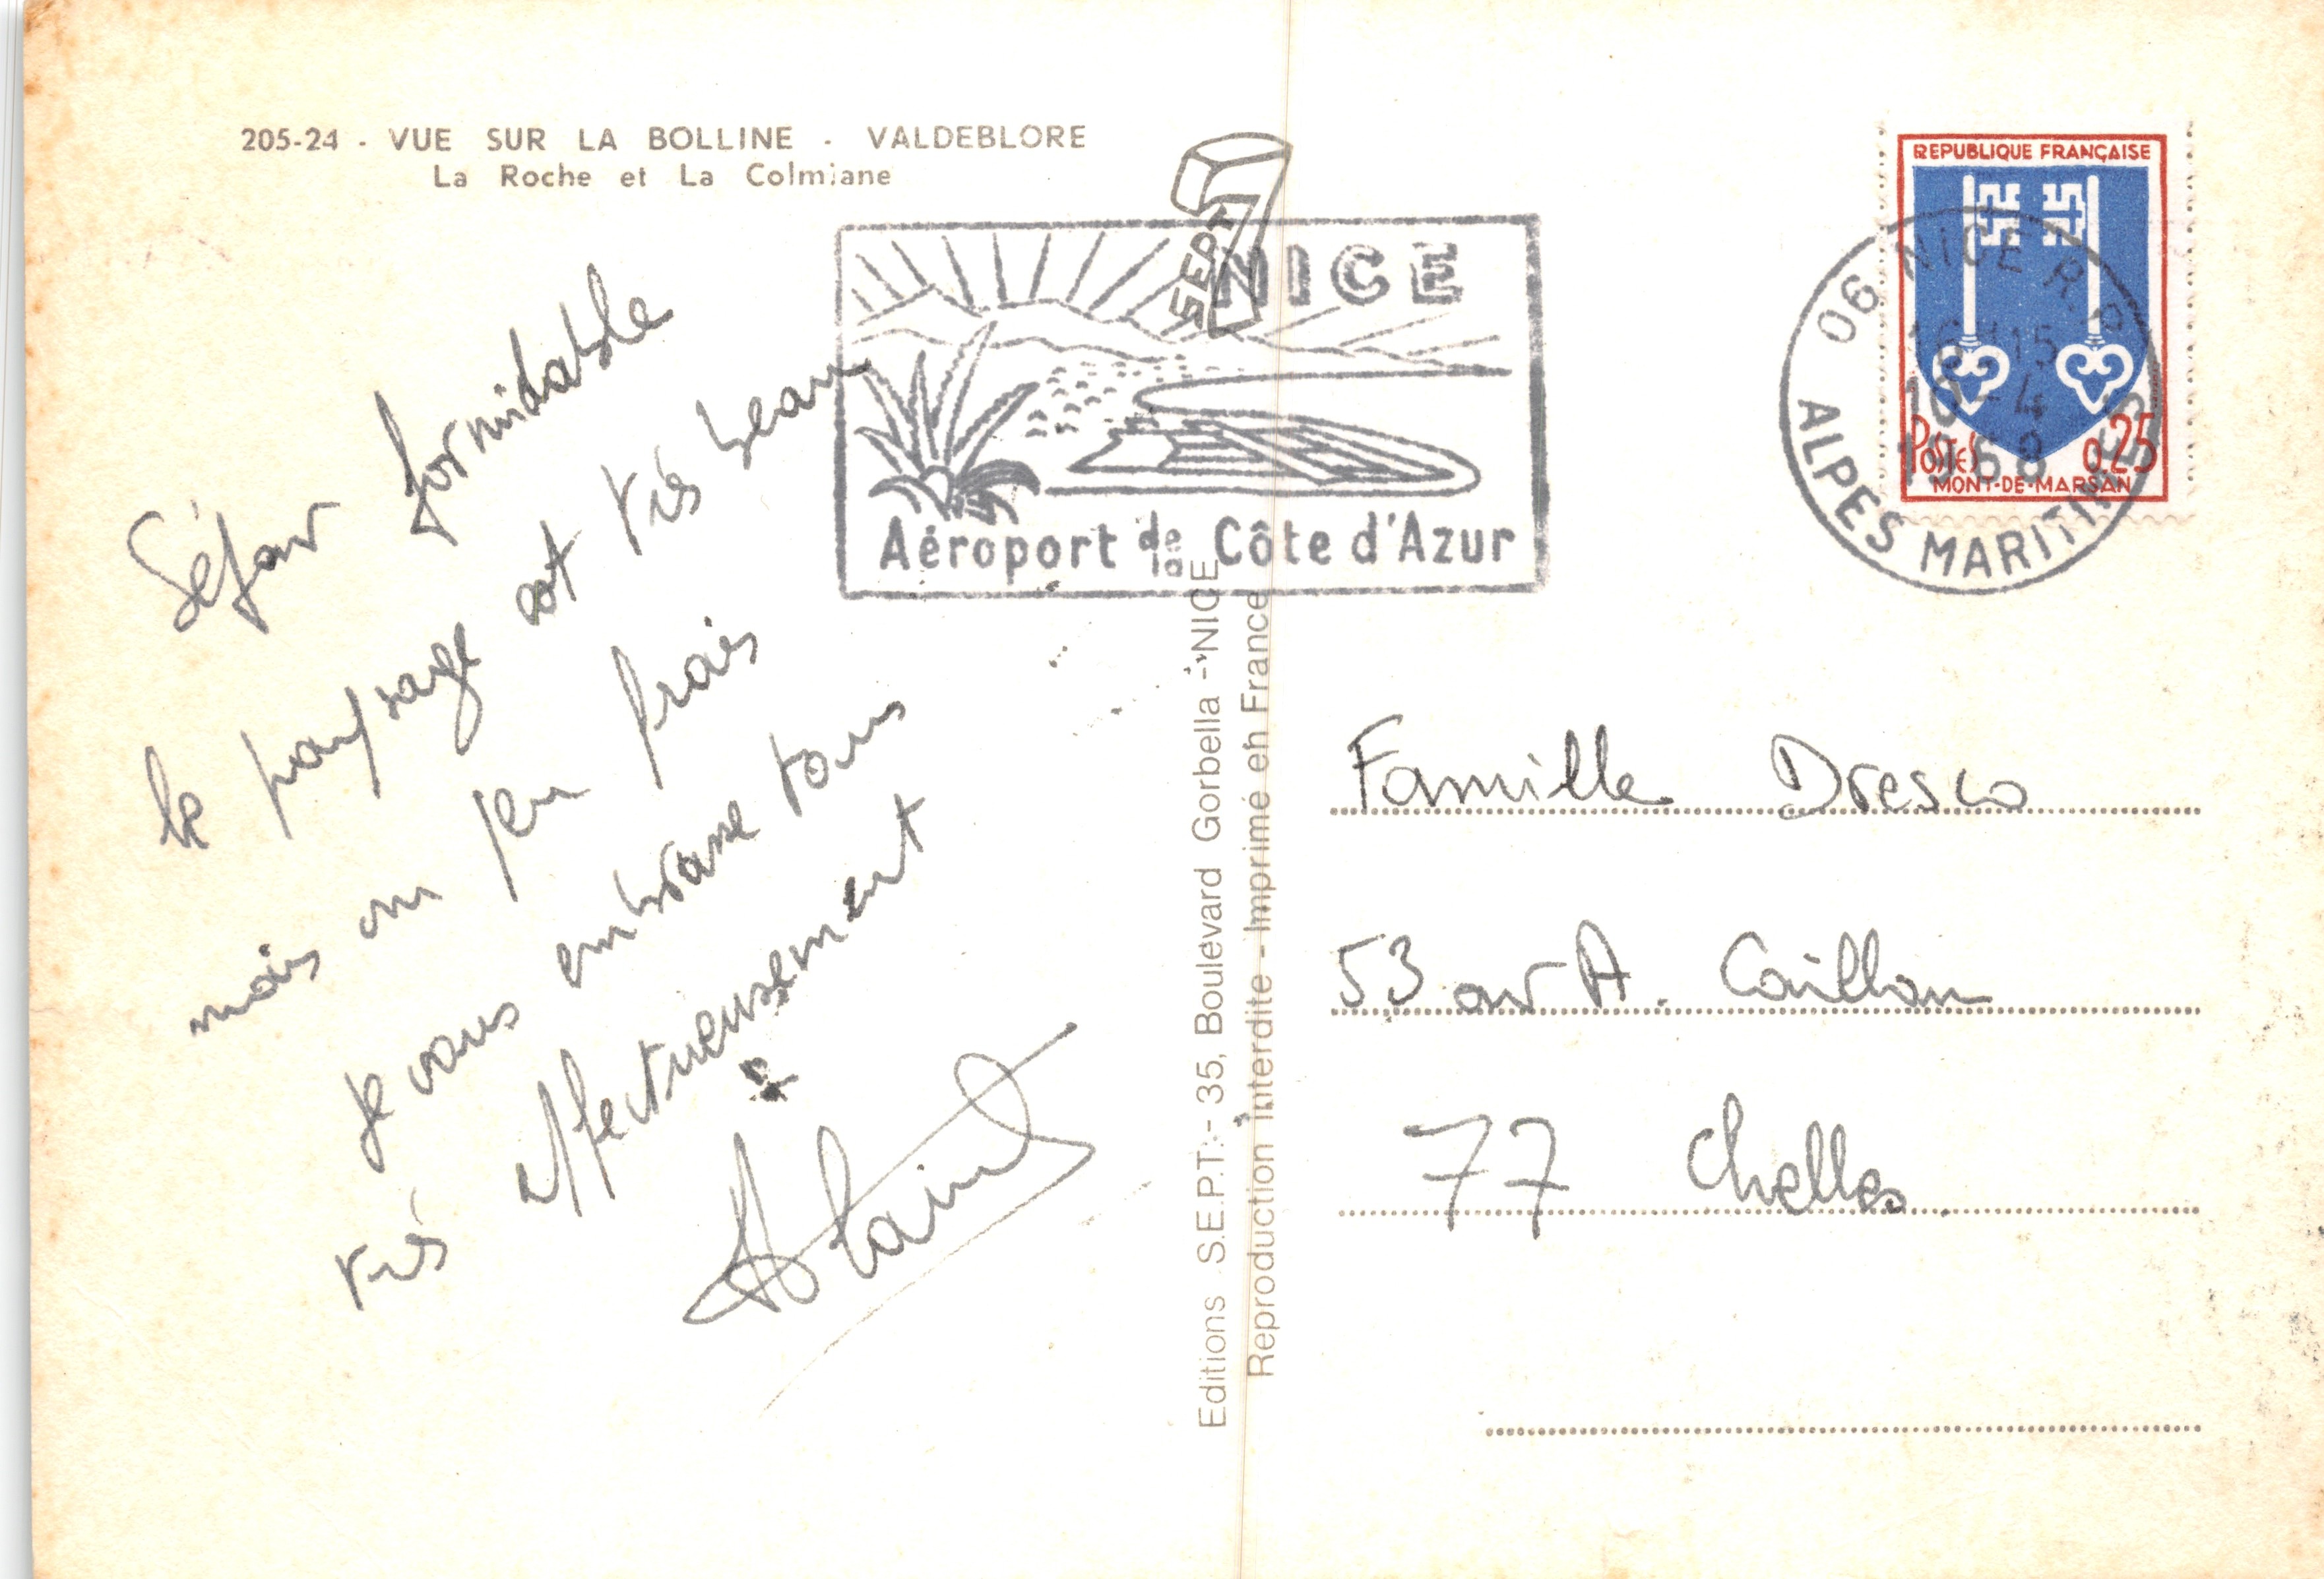 205-24 - VUE SUR LA BOLLINE - VALDEBLORE
La Roche et La Colmiane
Séjour formidable
le paysage est très beau
mais un peu frais
je vous embrasse tous
très affectueusement
Alain
SEPT
NICE
Aéroport de la Côte d'Azur
Editions S.E.P.T. - 35, Boulevard Gorbella - NICE
Reproduction Interdite - Imprimé en France
REPUBLIQUE FRANÇAISE
POSTES 0,25
MONT-DE-MARSAN
06 NICE R.P.
16H15
10-4
1968
ALPES MARITIMES
Famille Dresco
53 av A. Caillou
77 Chelles